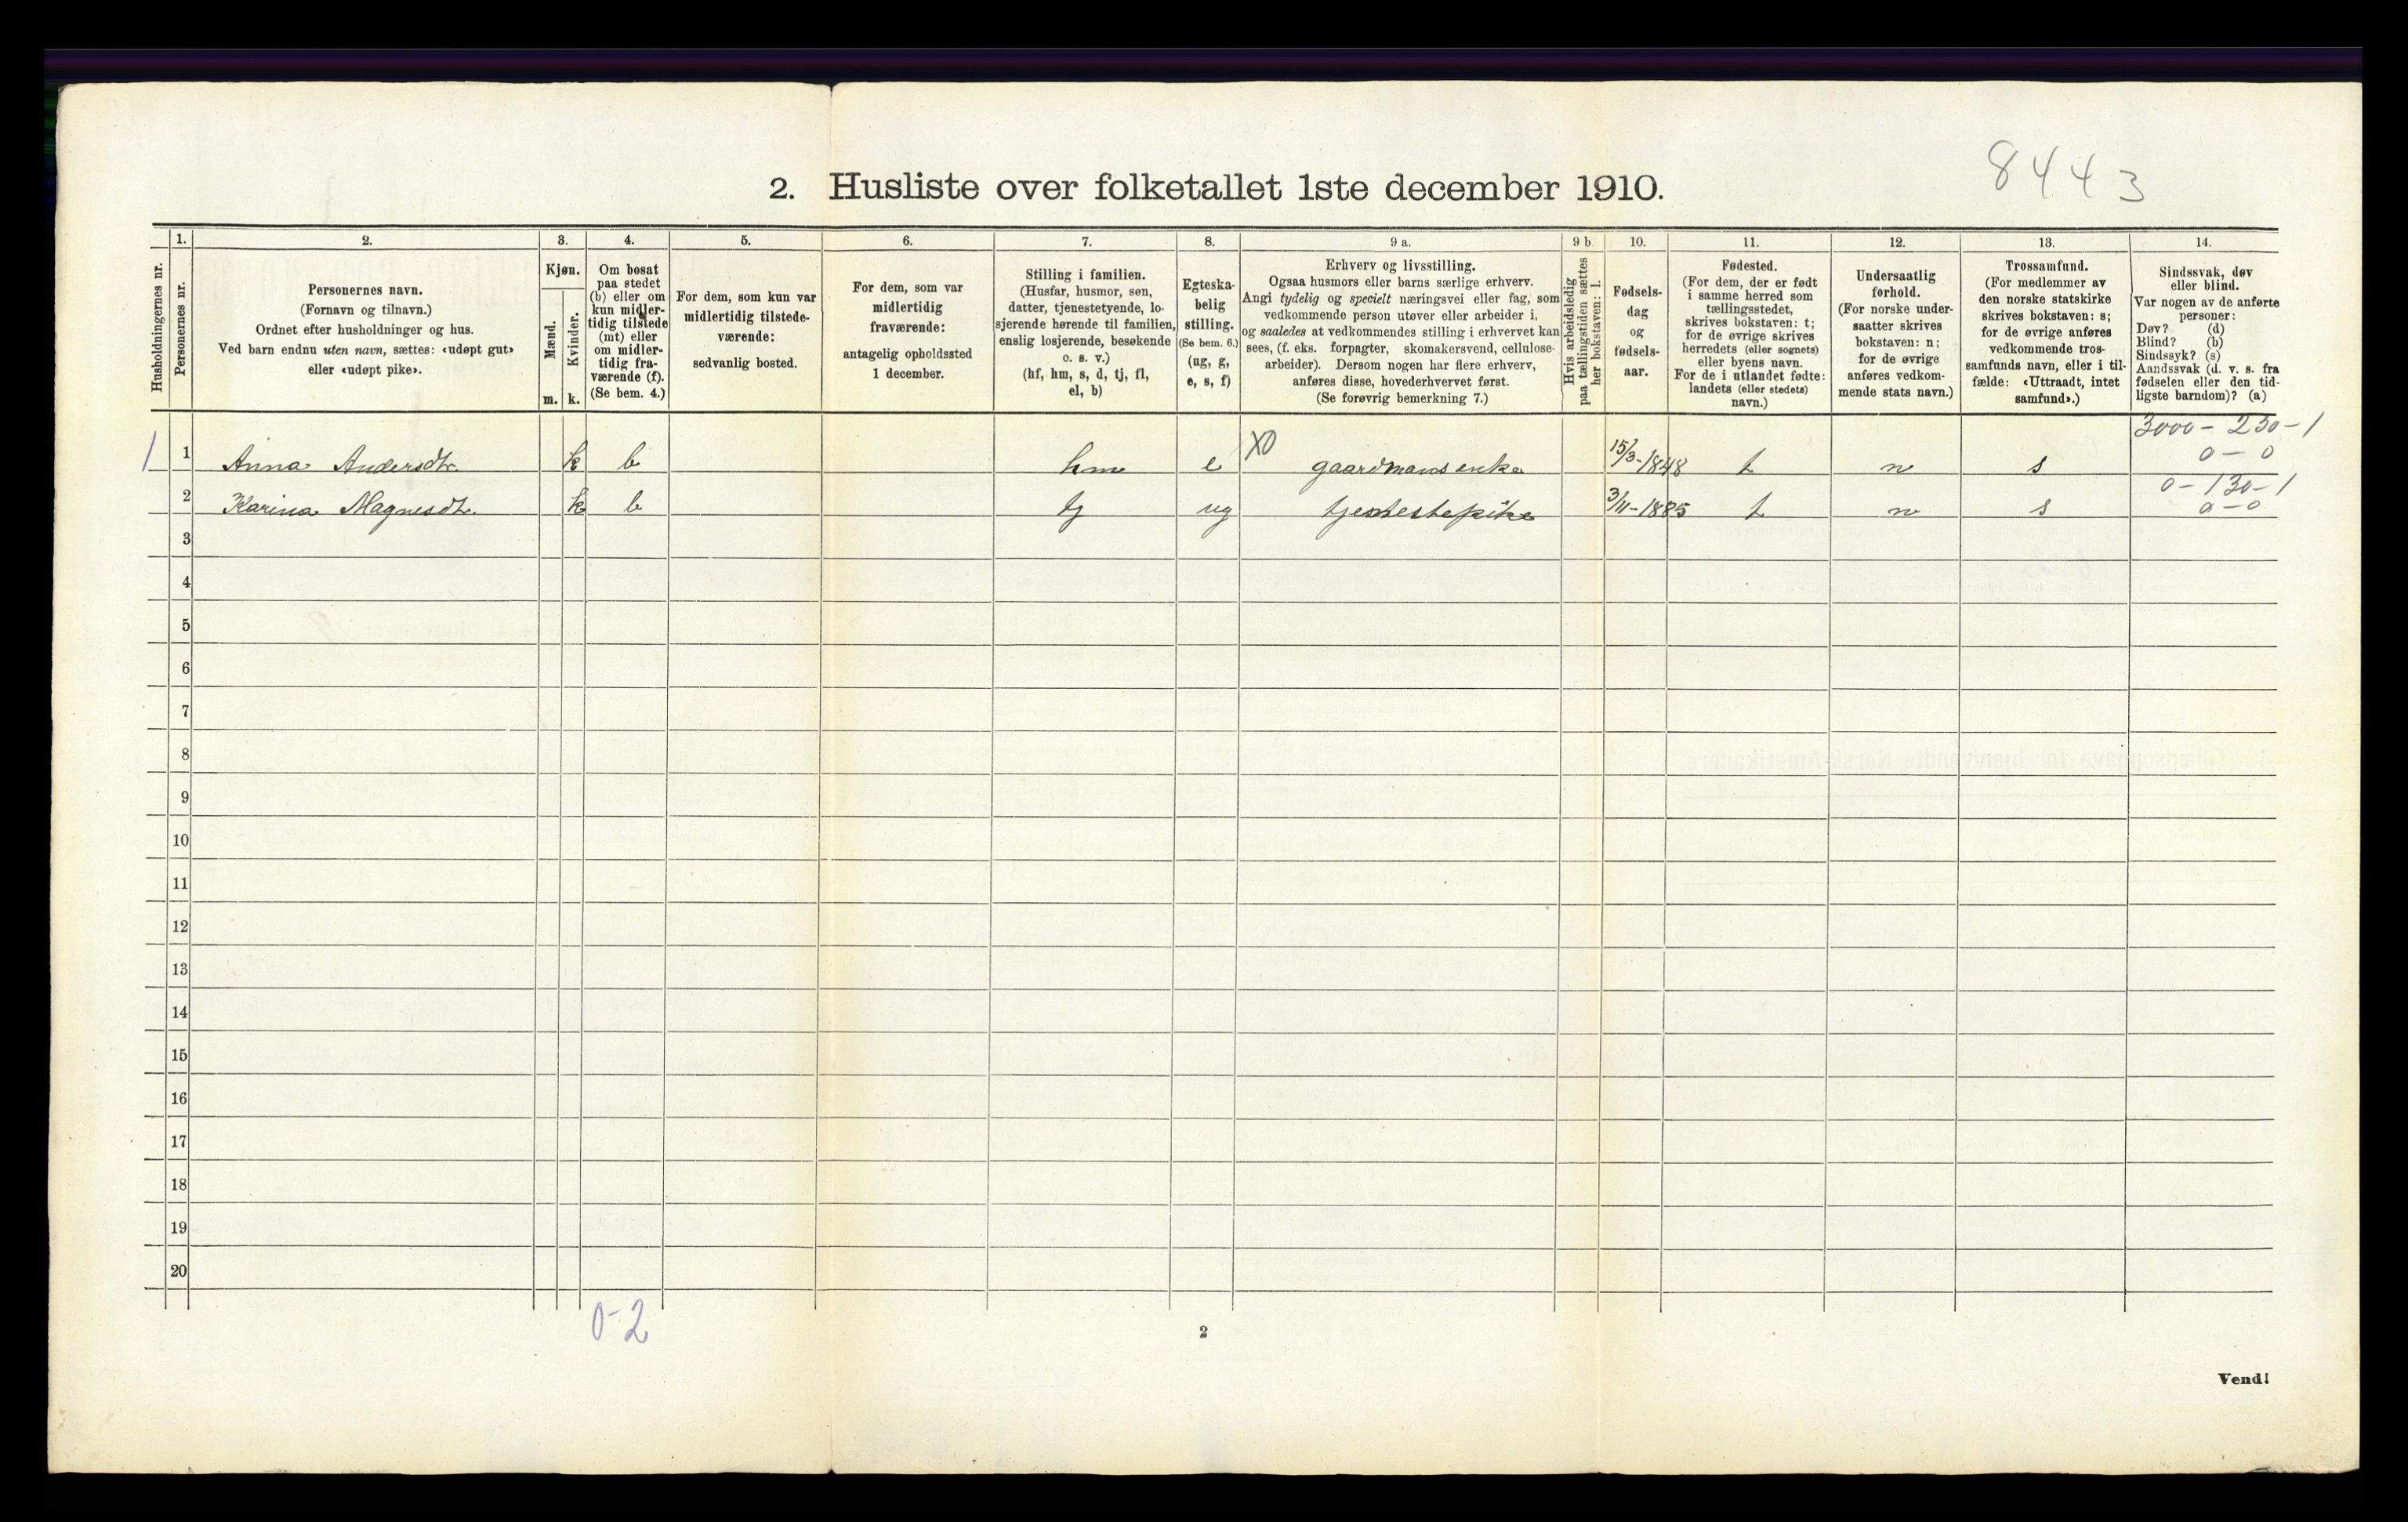 8443
2. Husliste over folketallet 1ste december 1910.
Husholdningernes nr.
1.
Personernes nr.
2.
Personernes navn.
(Fornavn og tilnavn.)
Ordnet efter husholdninger og hus.
Ved barn endnu uten navn, sættes: «udøpt gut»
eller «udøpt pike».
3.
Kjøn.
Mænd.
Kvinder.
m. k.
4.
Om bosat
paa stedet
(b) eller om
kun midler-
tidig tilstede
(mt) eller
om midler-
tidig fra-
værende (f).
(Se bem. 4.)
5.
For dem, som kun var
midlertidig tilstede-
værende:
sedvanlig bosted.
6.
For dem, som var
midlertidig
fraværende:
antagelig opholdssted
1 december.
7.
Stilling i familien.
(Husfar, husmor, søn,
datter, tjenestetyende, lo-
sjerende hørende til familien,
enslig losjerende, besøkende
o. s. v.)
(hf, hm, s, d, tj, fl,
el, b)
8.
Egteska-
belig
stilling.
(Se bem. 6.)
(ug, g,
e, s, f)
9 a.
Erhverv og livsstilling.
Ogsaa husmors eller barns særlige erhverv.
Angi tydelig og specielt næringsvei eller fag, som
vedkommende person utøver eller arbeider i,
og saaledes at vedkommendes stilling i erhvervet kan
sees, (f. eks. forpagter, skomakersvend, cellulose-
arbeider). Dersom nogen har flere erhverv,
anføres disse, hovederhvervet først.
(Se forøvrig bemerkning 7.)
9 b.
Hvis arbeidsledig
paa tællingstiden sættes
her bokstaven: l.
10.
Fødsels-
dag
og
fødsels-
aar.
11.
Fødested.
(For dem, der er født
i samme herred som
tællingsstedet,
skrives bokstaven: t;
for de øvrige skrives
herredets (eller sognets)
eller byens navn.
For de i utlandet fødte:
landets (eller stedets)
navn.)
12.
Undersaatlig
forhold.
(For norske under-
saatter skrives
bokstaven: n;
for de øvrige
anføres vedkom-
mende stats navn.)
13.
Trossamfund.
(For medlemmer av
den norske statskirke
skrives bokstaven: s;
for de øvrige anføres
vedkommende tros-
samfunds navn, eller i til-
fælde: «Uttraadt, intet
samfund».)
14.
Sindssvak, døv
eller blind.
Var nogen av de anførte
personer:
Døv? (d)
Blind? (b)
Sindssyk? (s)
Aandssvak (d. v. s. fra
fødselen eller den tid-
ligste barndom)? (a)
3000 - 250 - 1
1 1 Anna Andersdtr. k b hm e X0 gaardmansenke 15/3-1848 t n s 0 - 0
0 - 130 - 1
2 Karina Magnesdtr. k b tj ug tjenestepike 3/11-1885 t n s 0 - 0
3
4
5
6
7
8
9
10
11
12
13
14
15
16
17
18
19
20
0-2
2
Vend!